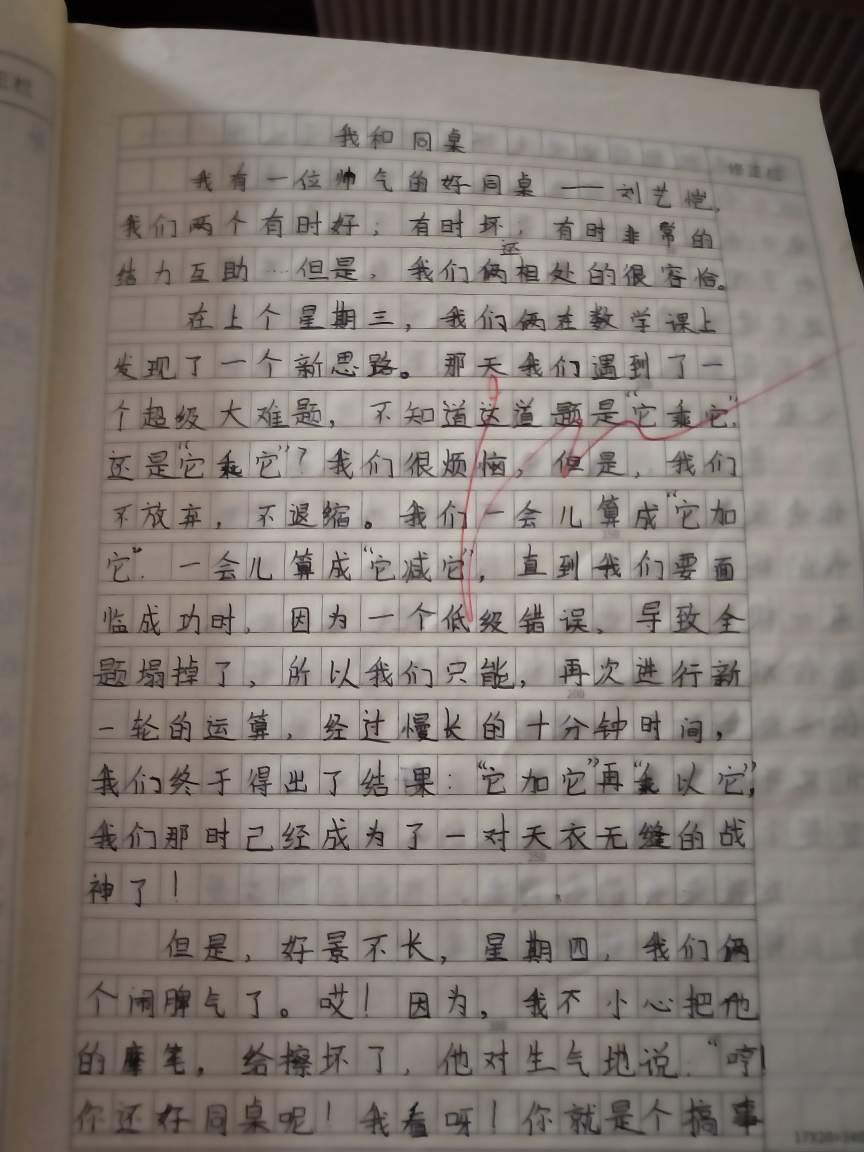 我和同桌
我有一位帅气的好同桌——刘艺恺,
我们两个有时好,有时坏,有时非常的
还
结力互助…但是,我们俩相处的很容恰。
在上个星期三,我们俩在数学课上
发现了一个新思路。那天我们遇到了一
个超级大难题,不知道这道题是“它乘它”
还是“它乘它”?我们很烦恼,但是,我们
不放弃,不退缩。我们一会儿算成“它加
它”.一会儿算成“它减它”,直到我们要面
临成功时,因为一个低级错误、导致全
题塌掉了,所以我们只能,再次进行新
一轮的运算,经过慢长的十分钟时间,
我们终于得出了结果:“它加它”再“乘以它”,
我们那时已经成为了一对天衣无缝的战
神了!
但是,好景不长,星期四,我们俩
个闹脾气了。哎!因为,我不小心把他
的摩笔,给擦坏了,他对生气地说:“哼!
你还好同桌呢!我看呀!你就是个搞事